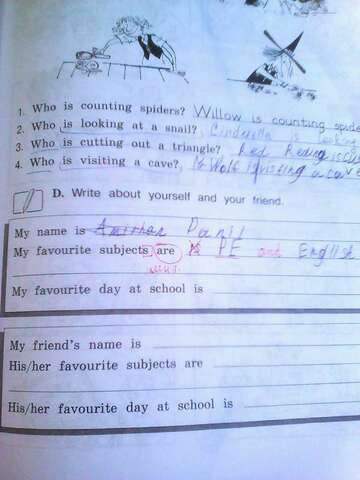 1. Who is counting spiders? Willow is counting spide
2. Who is looking at a snail? Cinderella is looking
3. Who is cutting out a triangle? Red
4. Who is visiting a cave? Mr Wolf is visiting a cave
D. Write about yourself and your friend.
My name is Danil
My favourite subjects are PE and English
My favourite day at school is
My friend's name is
His/her favourite subjects are
His/her favourite day at school is